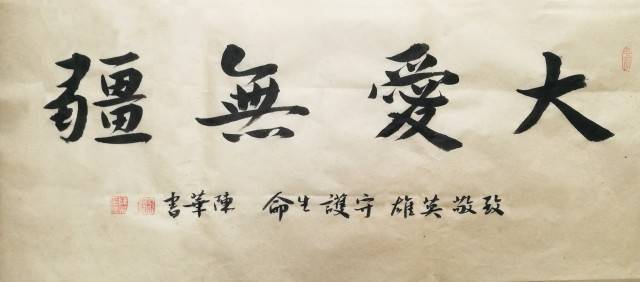 大愛無疆
致敬英雄 守護生命 陳華書